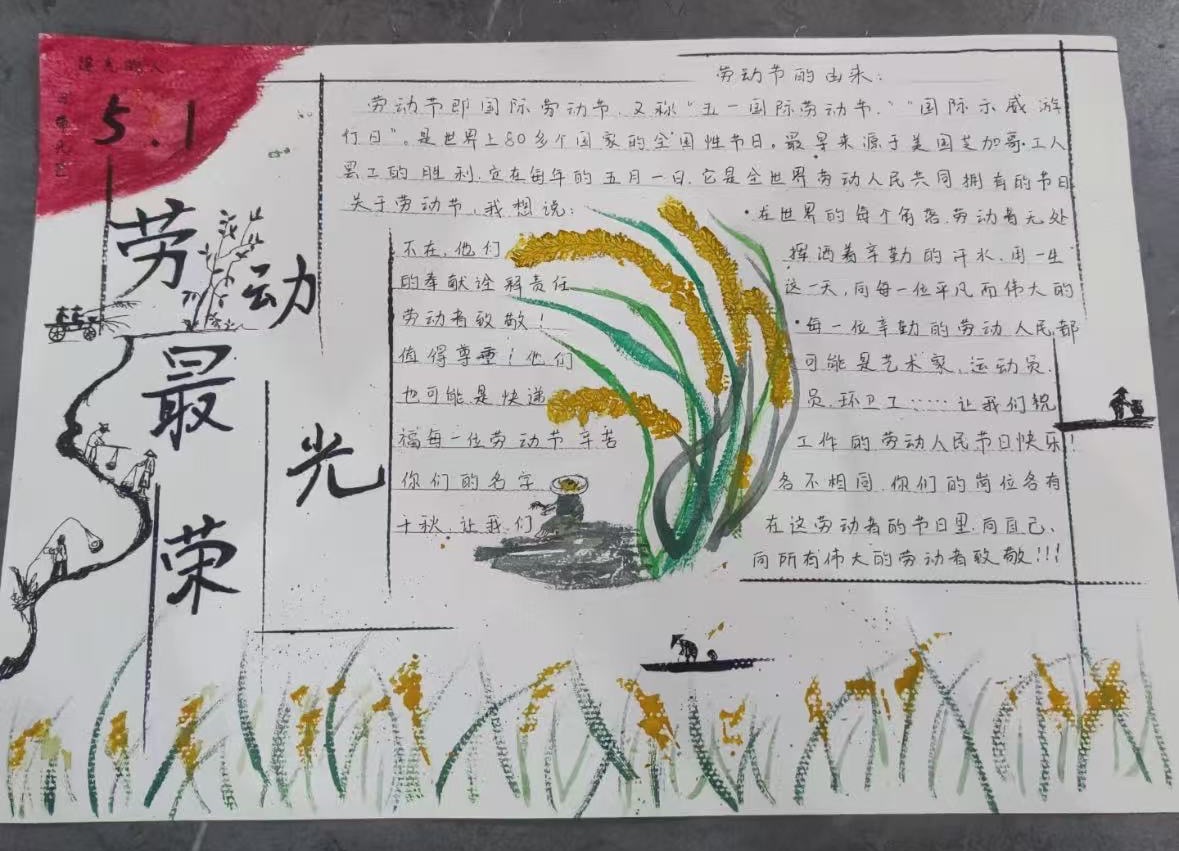 5.1
劳动最光荣
劳动节的由来:
劳动节即国际劳动节,又称“五一国际劳动节,”“国际示威游
行日”。是世界上80多个国家的全国性节日。最早来源于美国芝加哥工人
罢工的胜利,定在每年的五月一日,它是全世界劳动人民共同拥有的节日
关于劳动节,我想说:
在世界的每个角落,劳动者无处
不在,他们 挥洒着辛勤的汗水,用一生
的奉献诠释责任 这一天,向每一位平凡而伟大的
劳动者致敬! 每一位辛勤的劳动人民都
值得尊重!他们 可能是艺术家,运动员,
也可能是快递 员,环卫工……让我们祝
福每一位劳动节辛苦 工作的劳动人民节日快乐!
你们的名字 各不相同,你们的岗位各有
千秋,让我们 在这劳动者的节日里,向自己、
向所有伟大的劳动者致敬!!!